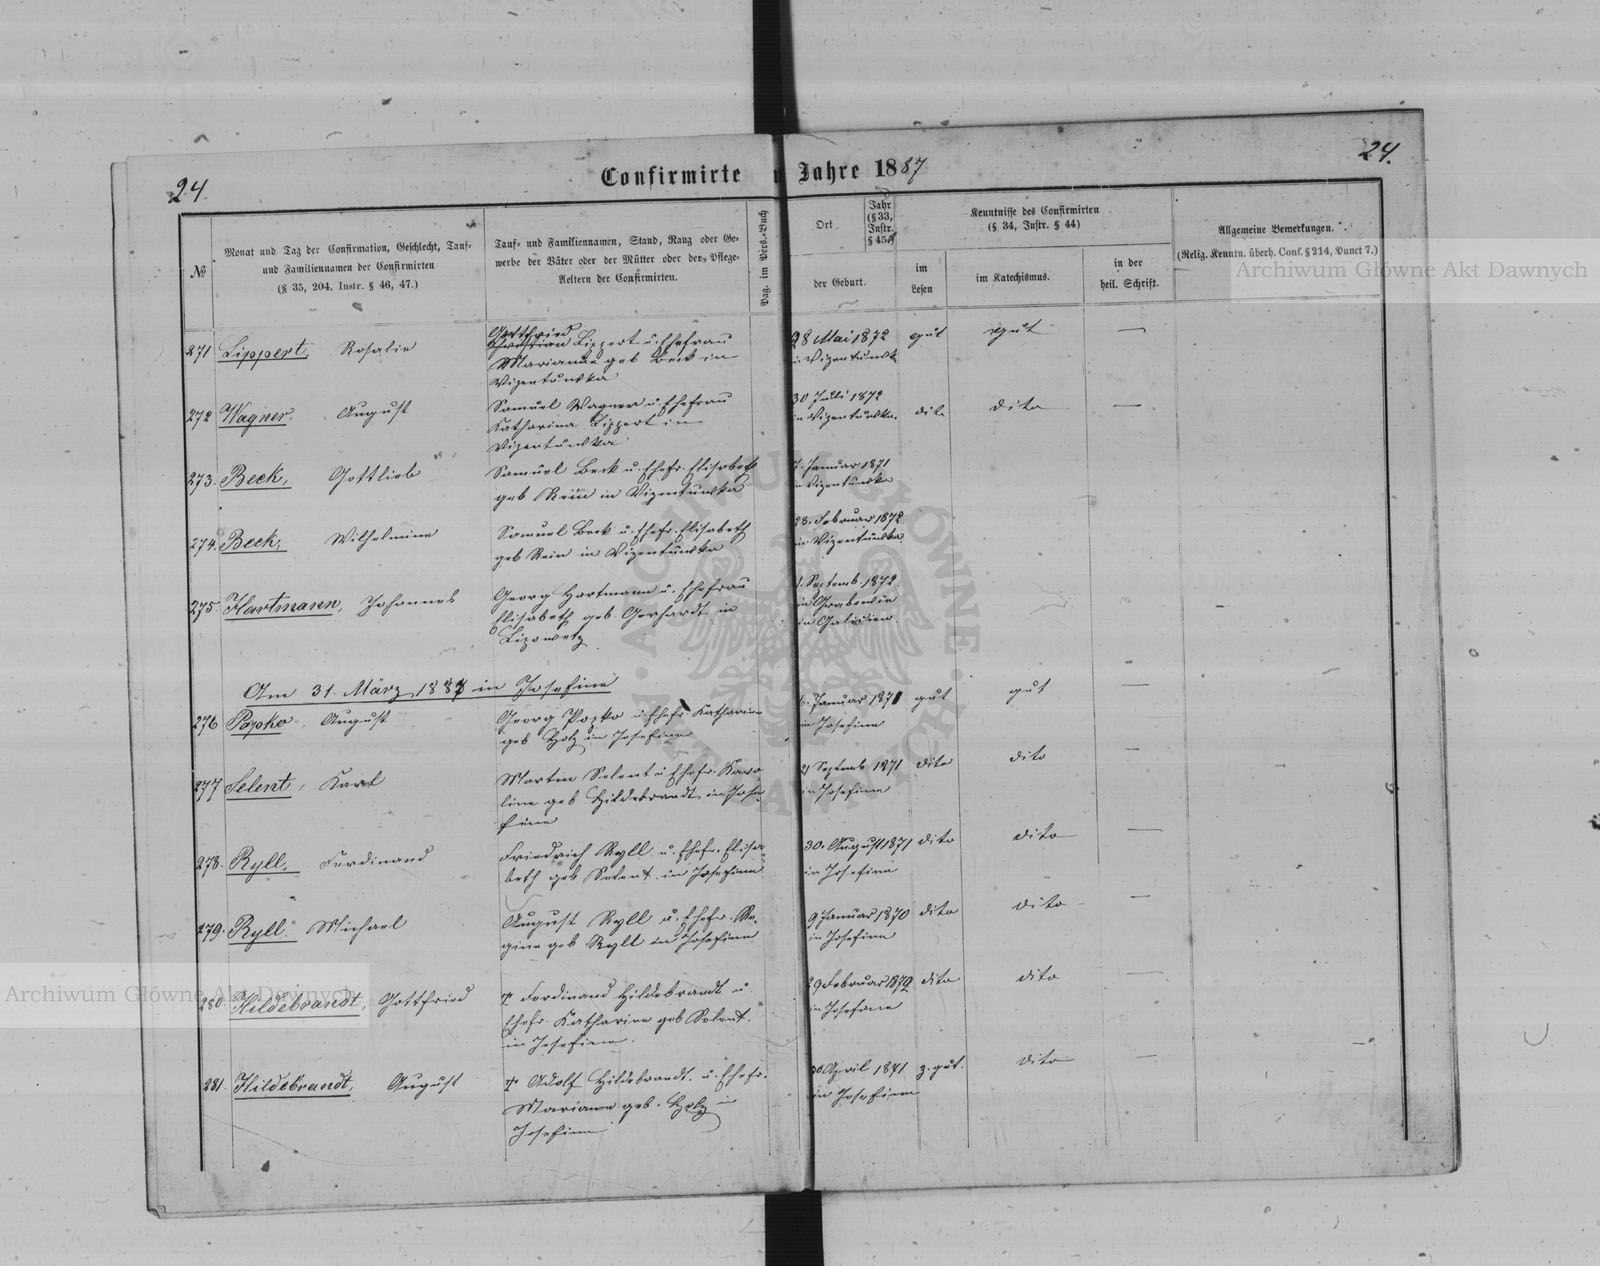 24.
24.
Confirmirte
Jahre 1887
№
Monat und Tag der Confirmation, Geschlecht, Tauf-
und Familiennamen der Confirmirten
(§ 35, 204. Instr. § 46, 47.)
Tauf- und Familiennamen, Stand, Rang oder Ge-
werbe der Väter oder der Mütter oder der Pflege-
Aeltern der Confirmirten.
Pag. im Pers.-Buch
Ort
Jahr
(§ 33,
Instr.
§ 45.)
der Geburt.
Kenntnisse des Confirmirten
(§ 34, Instr. § 44)
im
Lesen
im Katechismus.
in der
heil. Schrift.
Allgemeine Bemerkungen.
(Relig. Kenntn. überh. Conf. § 214, Punct 7.)
Archiwum Główne Akt Dawnych
271 Lippert, Rosalie
Gottfried
Christian Lippert u. Ehefrau
Marianne geb Beck in
Wizentuwka
28 Mai 1872
Wizentuwk
gut gut —
272 Wagner, August
Samuel Wagner u. Ehefrau
Katharina Lippert in
Wizentuwka
30 Juli 1872
in Wizentuwka
dito —
273. Beck, Gottlieb
Samuel Beck u. Ehefr. Elisabeth
geb Rein in Wizentuwka
7. Januar 1871
in Wizentuwka
274. Beck, Wilhelmine
Samuel Beck u. Ehefr. Elisabeth
geb Rein in Wizentuwka
28. Februar 1872
in Wizentuwka
275. Hartmann, Johannes
Georg Hartmann u. Ehefrau
Elisabeth geb Gerhardt in
Lizowetz
1. Septemb. 1872
in
in Galizien.
Am 31. März 1887 in Josefine
276 Popko August
Georg Popko u. Ehefr. Katharine
geb Holz in Josefine
Januar 1871
in Josefine
gut gut —
277 Selent, Karl
Martin Selent u. Ehefr. Karo-
line geb Hildebrandt in Jose-
fine
21 Septemb 1871
in Josefine
dito dito —
278. Ryll, Ferdinand
Friedrich Ryll u. Ehefr. Elisa-
beth geb Selent in Josefine
30. August 1871
in Josefine
dito dito —
279. Ryll Michael
August Ryll u. Ehefr. Re-
gine geb Ryll in Josefine
9 Januar 1870
in Josefine
dito dito —
280. Hildebrandt, Gottfried
† Ferdinand Hildebrandt u.
Ehefr. Katharine geb Selent.
in Josefine.
29 Februar 1872
in Josefine
dito dito —
Archiwum Główne Akt Dawnych
281. Hildebrandt, August
† Adolf Hildebrandt. u. Ehefr.
Marianne geb. Holz in
Josefine
April 1871
in Josefine
z. gut. dito —
ARCHIWUM GŁÓWNE AKT DAWNYCH